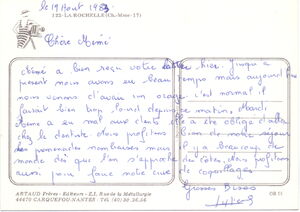 le 19 Aout 1983
122-LA ROCHELLE (Ch.-Mme-17)
Chère Mémé
Mémé a bien reçu votre lettre hier. Jusqu'a
present nous avons eu beau temps mais aujourd'hui
nous venons d'avoir un orage c'est normal il
faisait bien trop lourd depuis ce matin. Mardi
Mémé a eu mal aux dents elle a été obligé d'aller
chez le dentiste. Nous profitons de notre séjour
les promenades nombreuses mais il y a beaucoup de
monde dès que l'on s'approche des Côtes. Nous profitons
aussi pour faire notre cure de coquillages
Grosses Bises
ARTAUD Frères - Editeurs - Z.I. Rue de la Métallurgie
44470 CARQUEFOU-NANTES - Tél. 49.36.56